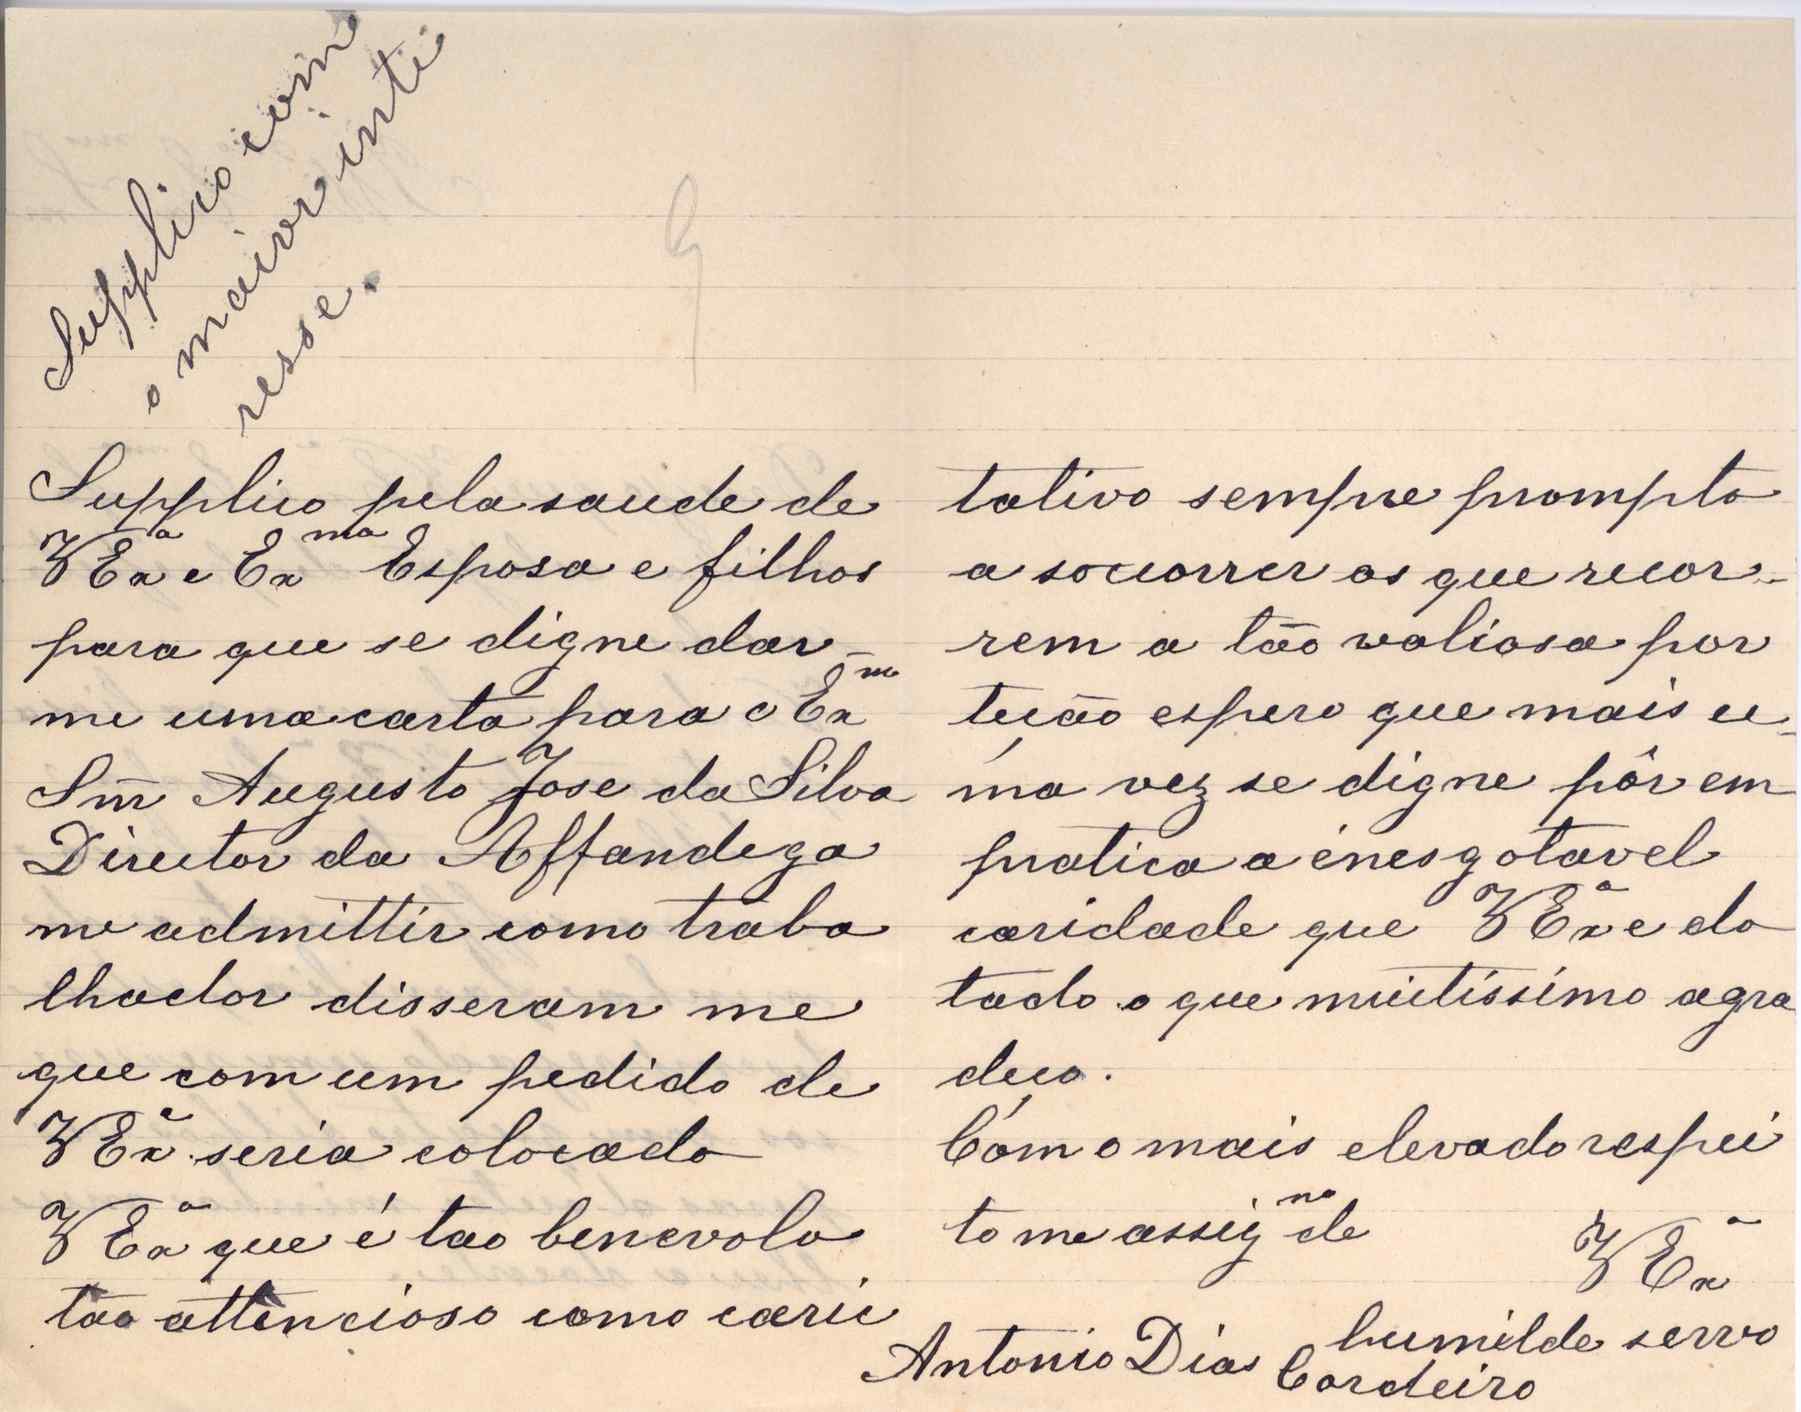 Supplico com
o maior inte
resse.
Supplico pela saude de
V Exª e Exma Esposa e filhos
para que se digne dar-
me uma carta para o Exmo
Snr Augusto Jose da Silva
Director da Alfandega
me admittir como traba
lhador disseram me
que com um pedido de
V Exª seria colocado
V Exª que é tao benevolo
tão attencioso como cari
tativo sempre prompto
a socorrer os que recor-
rem a tão valiosa por
tecão espero que mais u-
ma vez se digne pôr em
pratica a énesgotavel
caridade que V Exª e do
tado o que muitissimo agra
deco.
Com o mais elevado respei
to me assigno de
V Exª
humilde servo
Antonio Dias Cordeiro